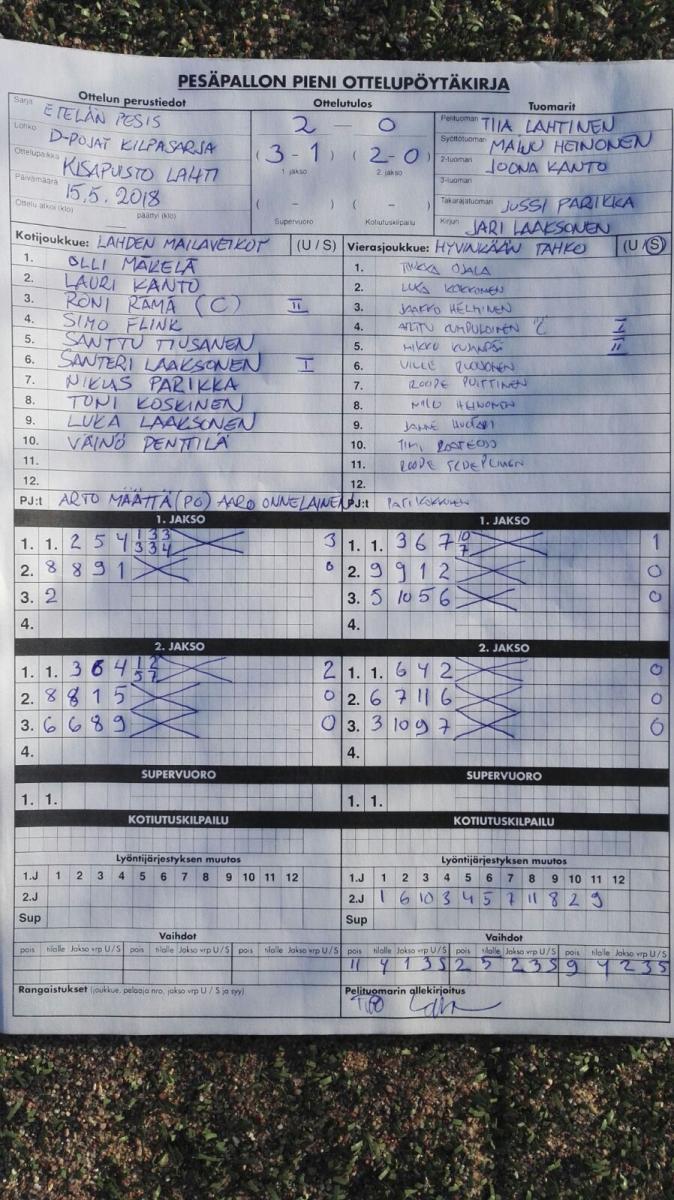 PESÄPALLON PIENI OTTELUPÖYTÄKIRJA
Ottelun perustiedot
Sarja ETELÄN PESIS
Lohko D-POJAT KILPASARJA
Ottelupaikka KISAPUISTO LAHTI
Päivämäärä 15.5. 2018
Ottelu alkoi (klo) päättyi (klo)
Ottelutulos
2 — 0
(3-1) (2-0)
1. jakso 2. jakso
( - ) ( - )
Supervuoro Kotiutuskilpailu
Tuomarit
Pelituomari TIIA LAHTINEN
Syöttötuomari HEINONEN
2-tuomari JOONA KANTO
3-tuomari
Takarajatuomari JUSSI PARIKKA
Kirjuri JARI LAAKSONEN
Kotijoukkue: LAHDEN MAILAVEIKOT (U / S)
1. OLLI MÄKELÄ
2. LAURI KANTO
3. RONI RÄMÄ (C) II
4. SIMO FLINK
5. SANTTU TIUSANEN
6. SANTERI LAAKSONEN I
7. NIKLAS PARIKKA
8. TONI KOSKINEN
9. LUKA LAAKSONEN
10. VÄINÖ PENTTILÄ
11.
12.
PJ:t ARTO MÄÄTTÄ (PG) AARO ONNELAINEN
Vierasjoukkue: HYVINKÄÄN TAHKO (U / S)
1. OJALA
2. LUKA KOKKONEN
3. JAAKKO HELMINEN
4. C I
5. MIKKO II
6. VILLE
7. ROOPE PUITTINEN
8. HEINONEN
9. JANNE HUOTARI
10.
11. ROOPE
12.
PJ:t KOKKONEN
1. JAKSO
1. 1. 2 5 4 1 3 3 3 3 4 3
2. 8 8 9 1 0
3. 2
4.
1. JAKSO
1. 1. 3 6 7 10 7 1
2. 9 9 1 2 0
3. 5 10 5 6 0
4.
2. JAKSO
1. 1. 3 6 4 1 2 5 7 2
2. 8 8 1 5 0
3. 6 6 8 9 0
4.
2. JAKSO
1. 1. 6 4 2 0
2. 6 7 11 6 0
3. 3 10 9 7 0
4.
SUPERVUORO
1. 1.
SUPERVUORO
1. 1.
KOTIUTUSKILPAILU
KOTIUTUSKILPAILU
Lyöntijärjestyksen muutos
1.J 1 2 3 4 5 6 7 8 9 10 11 12
2.J
Sup
Lyöntijärjestyksen muutos
1.J 1 2 3 4 5 6 7 8 9 10 11 12
2.J 1 6 10 3 4 5 7 11 8 2 9
Sup
Vaihdot
pois tilalle Jakso vrp U / S pois tilalle Jakso vrp U / S pois tilalle Jakso vrp U / S
Vaihdot
pois tilalle Jakso vrp U / S pois tilalle Jakso vrp U / S pois tilalle Jakso vrp U / S
11 4 1 3 S 2 5 2 3 S 9 4 2 3 S
Rangaistukset (joukkue, pelaaja nro, jakso vrp U / S ja syy)
Pelituomarin allekirjoitus